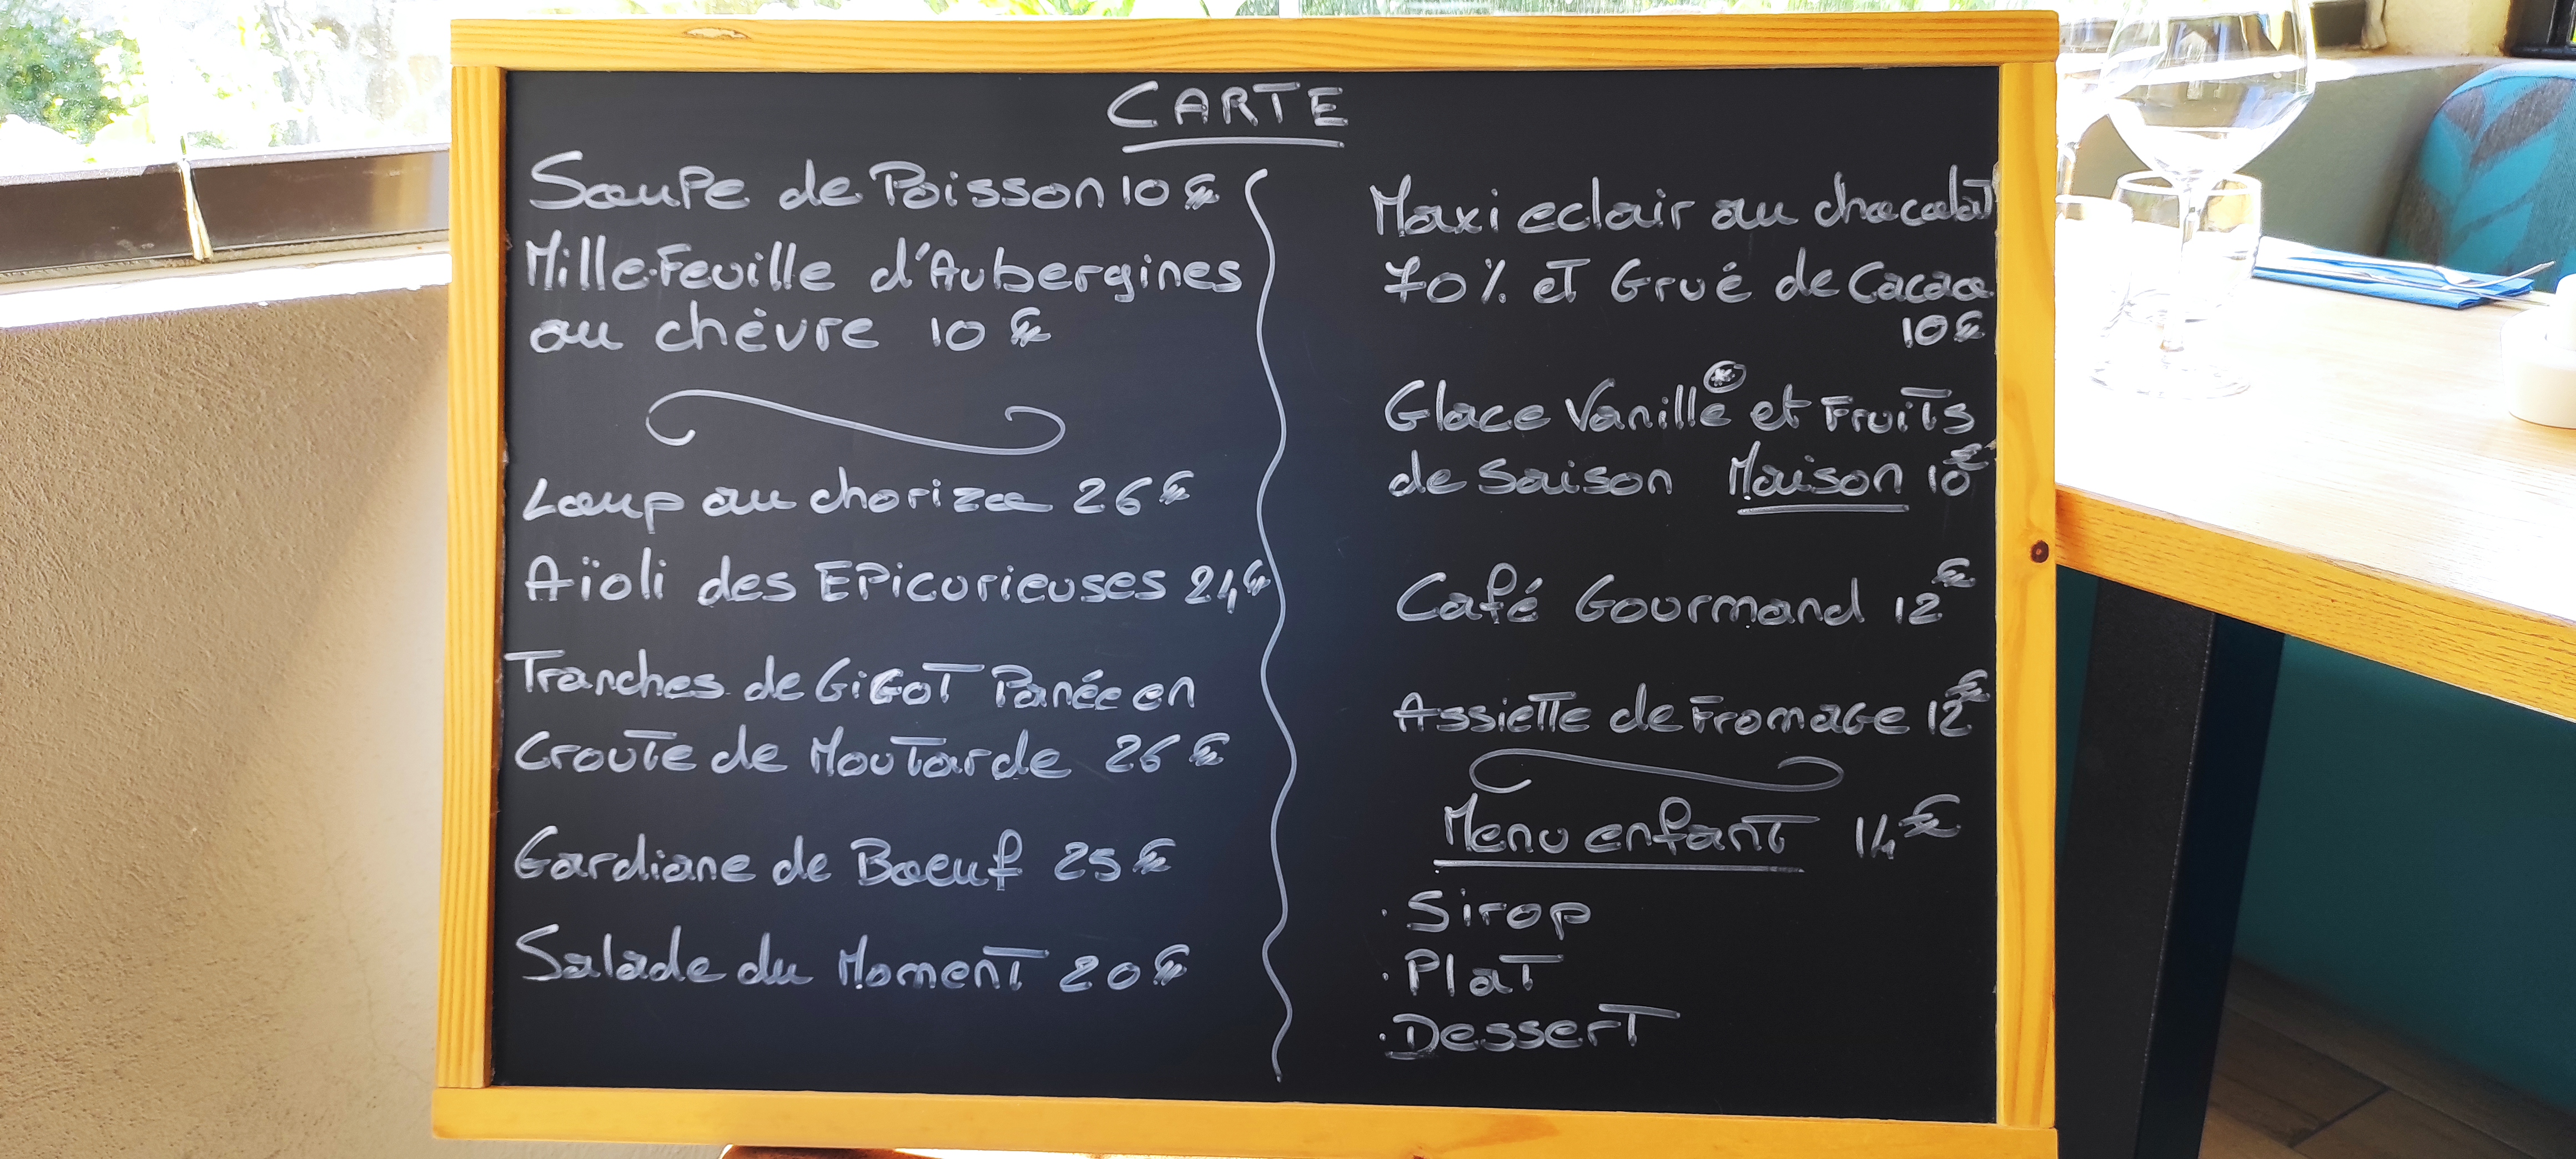 CARTE
Soupe de Poisson 10€
Mille-Feuille d'Aubergines
au chèvre 10€
Loup au chorizo 26€
Aïoli des Epicurieuses 24€
Tranches de Gigot Panée en
Croute de Moutarde 26€
Gardiane de Boeuf 25€
Salade du Moment 20€
Maxi eclair au chocolat
70% et Grué de Cacao
10€
Glace Vanille * et Fruits
de Saison Maison 10€
Café Gourmand 12€
Assiette de Fromage 12€
Menu enfant 14€
· Sirop
· Plat
· Dessert